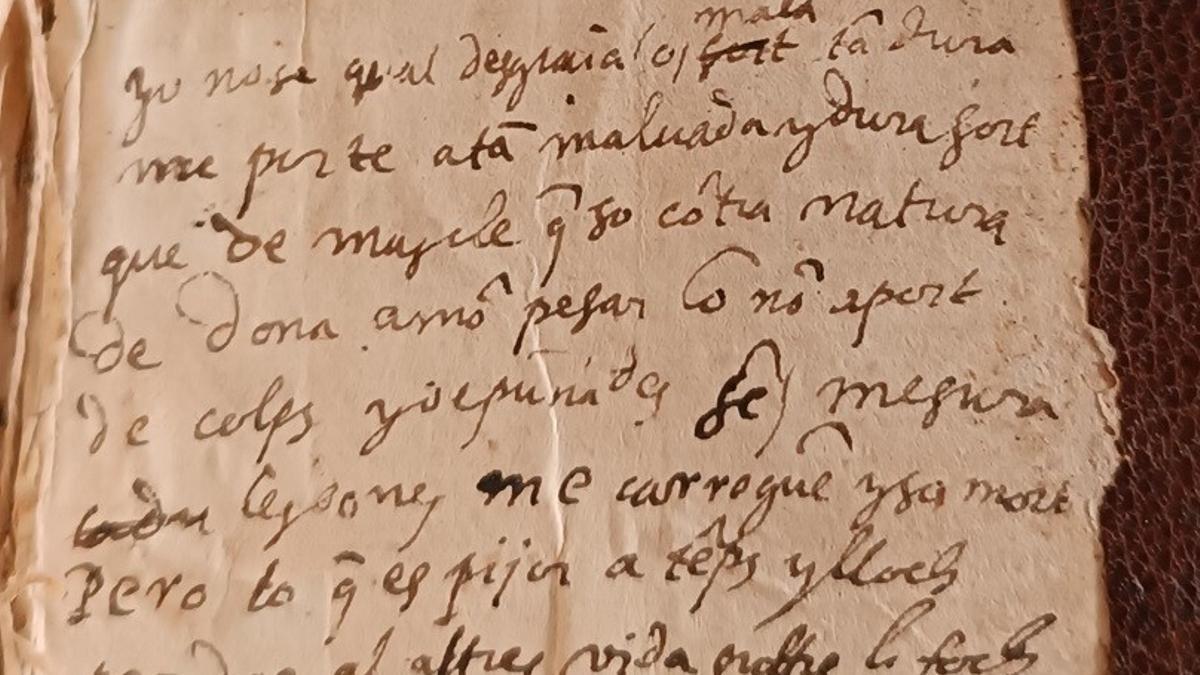 mala
yo no se qual desgratia o sort tã dura
me porte atã maluada y dura sort
que de mascle q̃ so cõtra natura
de dona amõ pesar lo nõ aport
de colps y de puñades se) mesura
les dones me carregũe y so mort
Pero lo q̃ es pijor a tẽps y llochs
al altres vida li fochs